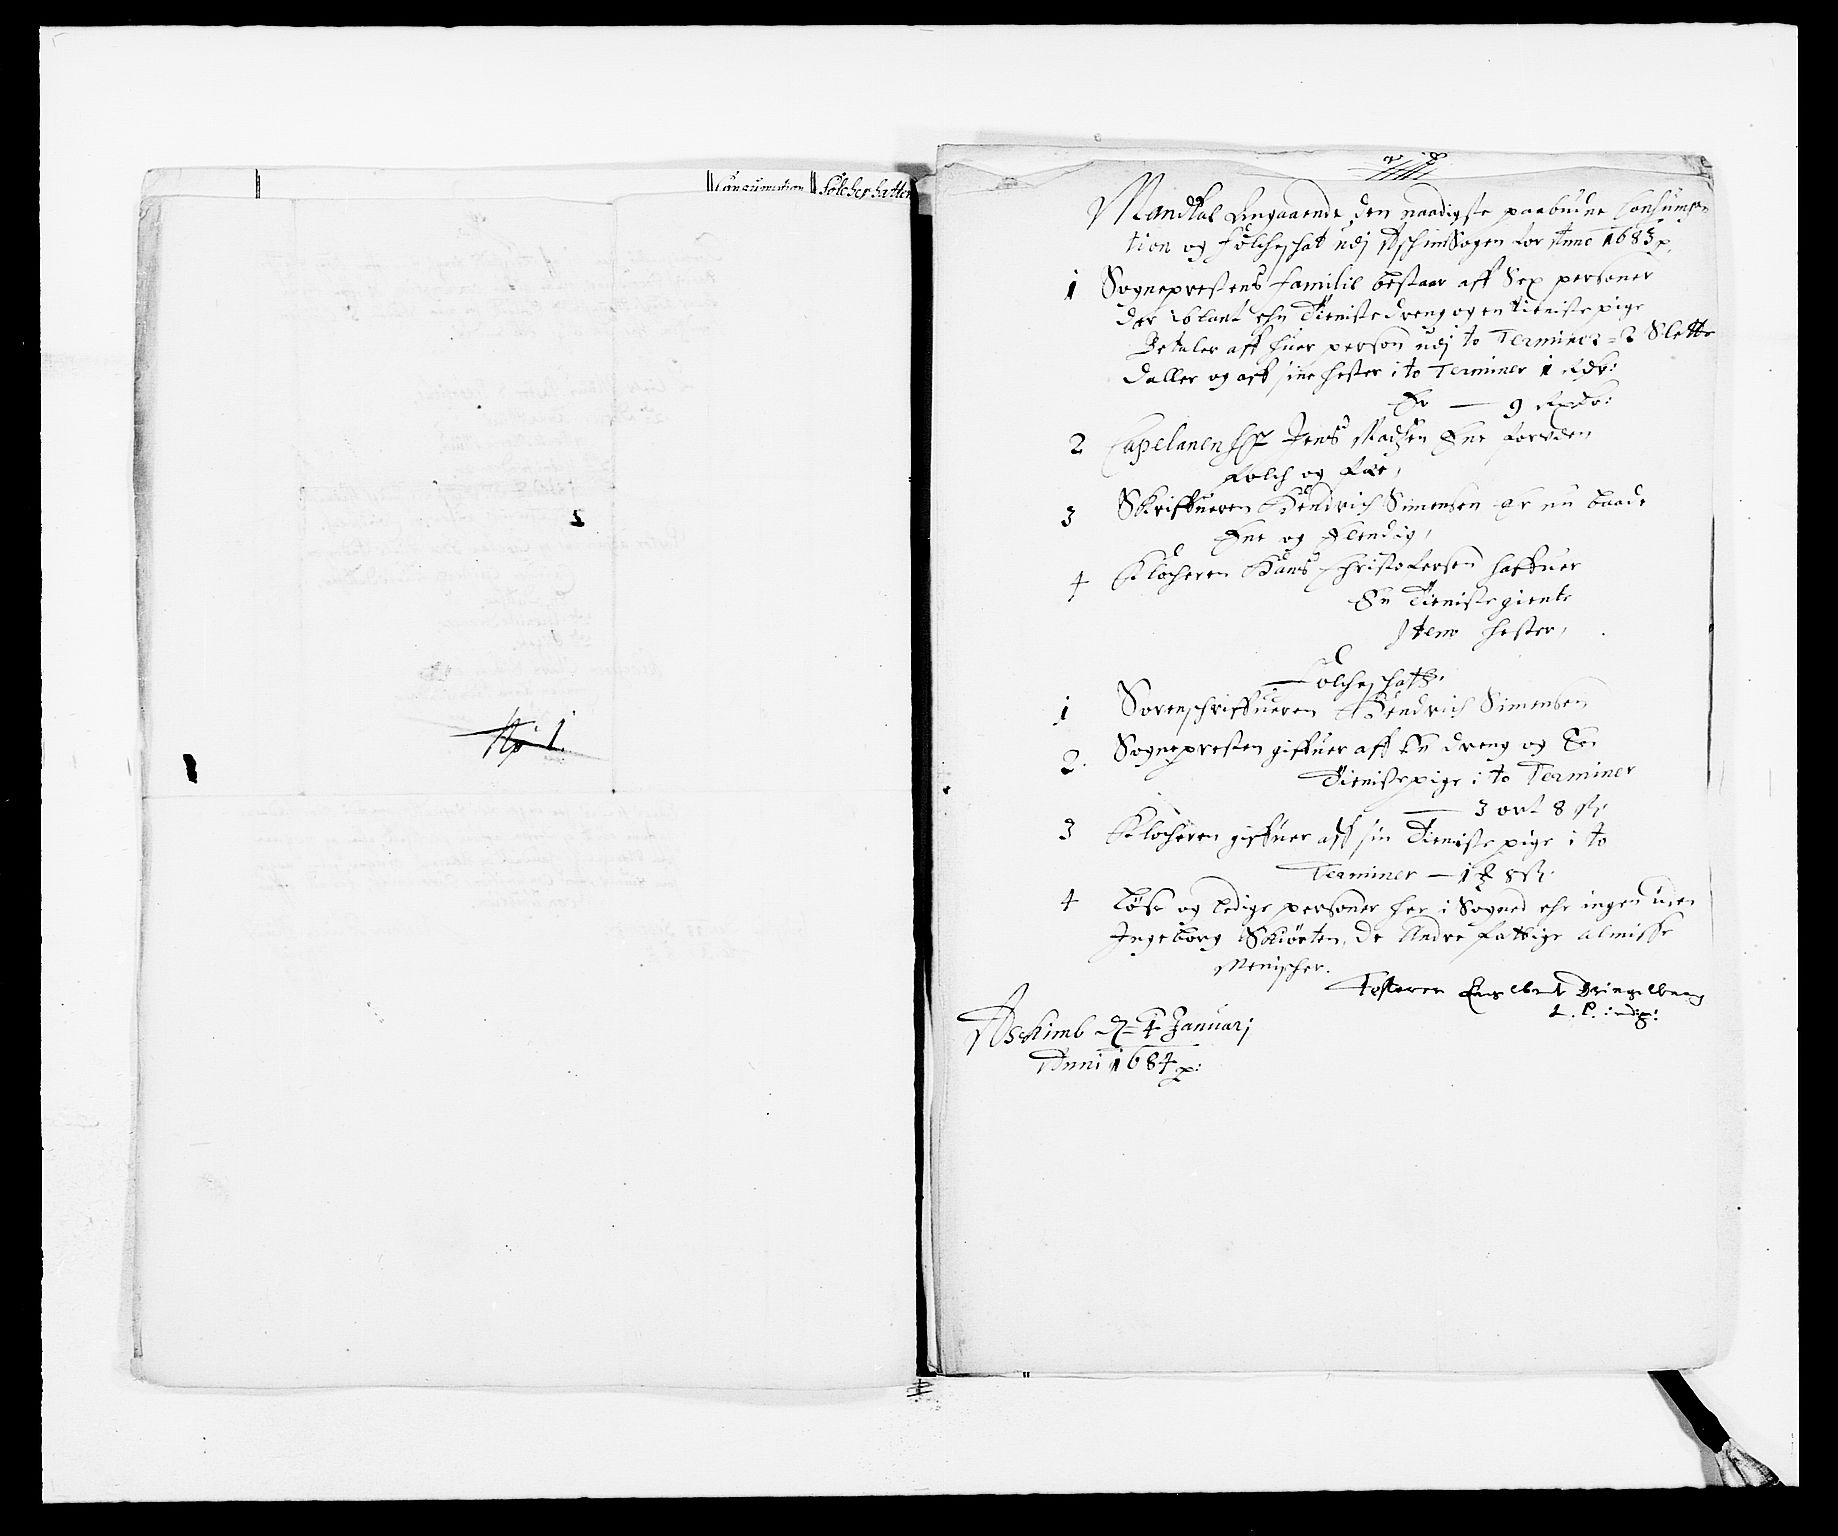 Consumption Folcheshatten
No 1.
Mandtal Angaaende den naadigste paabudne Consump
tion og folcheshat udj Aschim Sogen for Anno 1683 p.
1 Sogneprestens familie bestaar aff Sex personer
der iblant ehn Tienistedreng og en tieniste pige
Betaler aff huer person udj to Terminer 2 Slette
daller og aff sine hester i to Terminer 1 Rdr:
Er — 9 Rixdr:
2 Capelanen Hr Jens Madsen Ene foruden
folch og fæe,
3 Skriffueren Hendrich Simensen Er nu baade
Ene og Elendig,
4 Klocheren Hans Christofersen haffuer
En Tienistegiente
Item hester,
Folcheshatt.
1 Sorenschriffueren Hendrich Simensen
2. Sognepresten giffuer aff En dreng og En
Tienistepige i to Terminer
— 3 ort 8 sh.
3 Klocheren giffuer aff sin Tieniste pige i to
Terminer — 1 8 sh.
4 Løse og ledige personer her i Sogned ehr ingen uden
Ingeborg Skiørten, de Andre fattige almisse
Menischer.
Testerer Engelbret Dringelberg
Askimb d. 4 Januarj
Anni 1684 p: